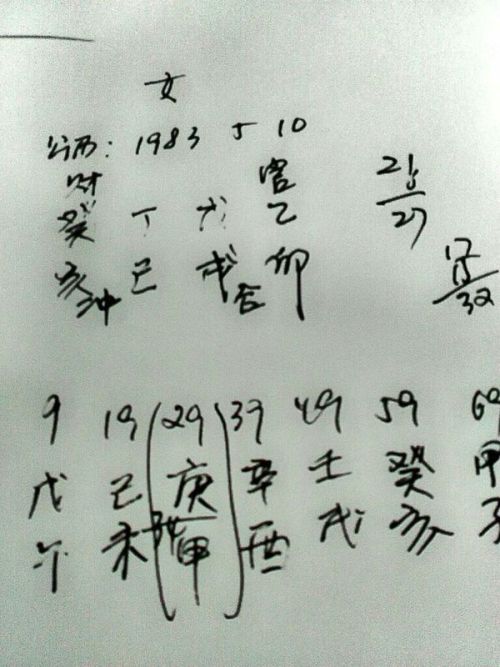 女
公历: 1983 5 10
财 官 21
6
癸 丁 戊 乙 27
亥冲 巳 戌合 卯 17
15
32
9 19 (29) 39 49 59 69
戊 己 庚 辛 壬 癸 甲
午 未 申 酉 戌 亥 子